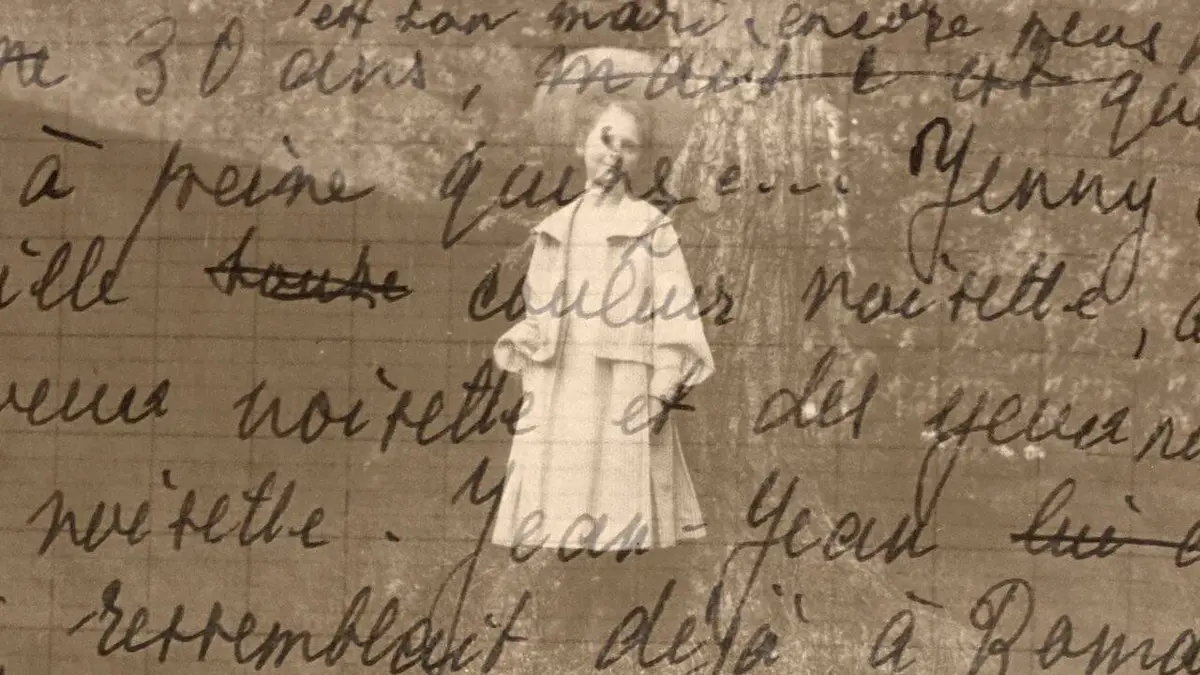 et son mari, encore plus
30 ans, qu
à peine quinze... Jenny
ille toute couleur noisette,
veux noisette et des yeux no
noisette. Jean-Jean lui
ressemblait déjà à Roma